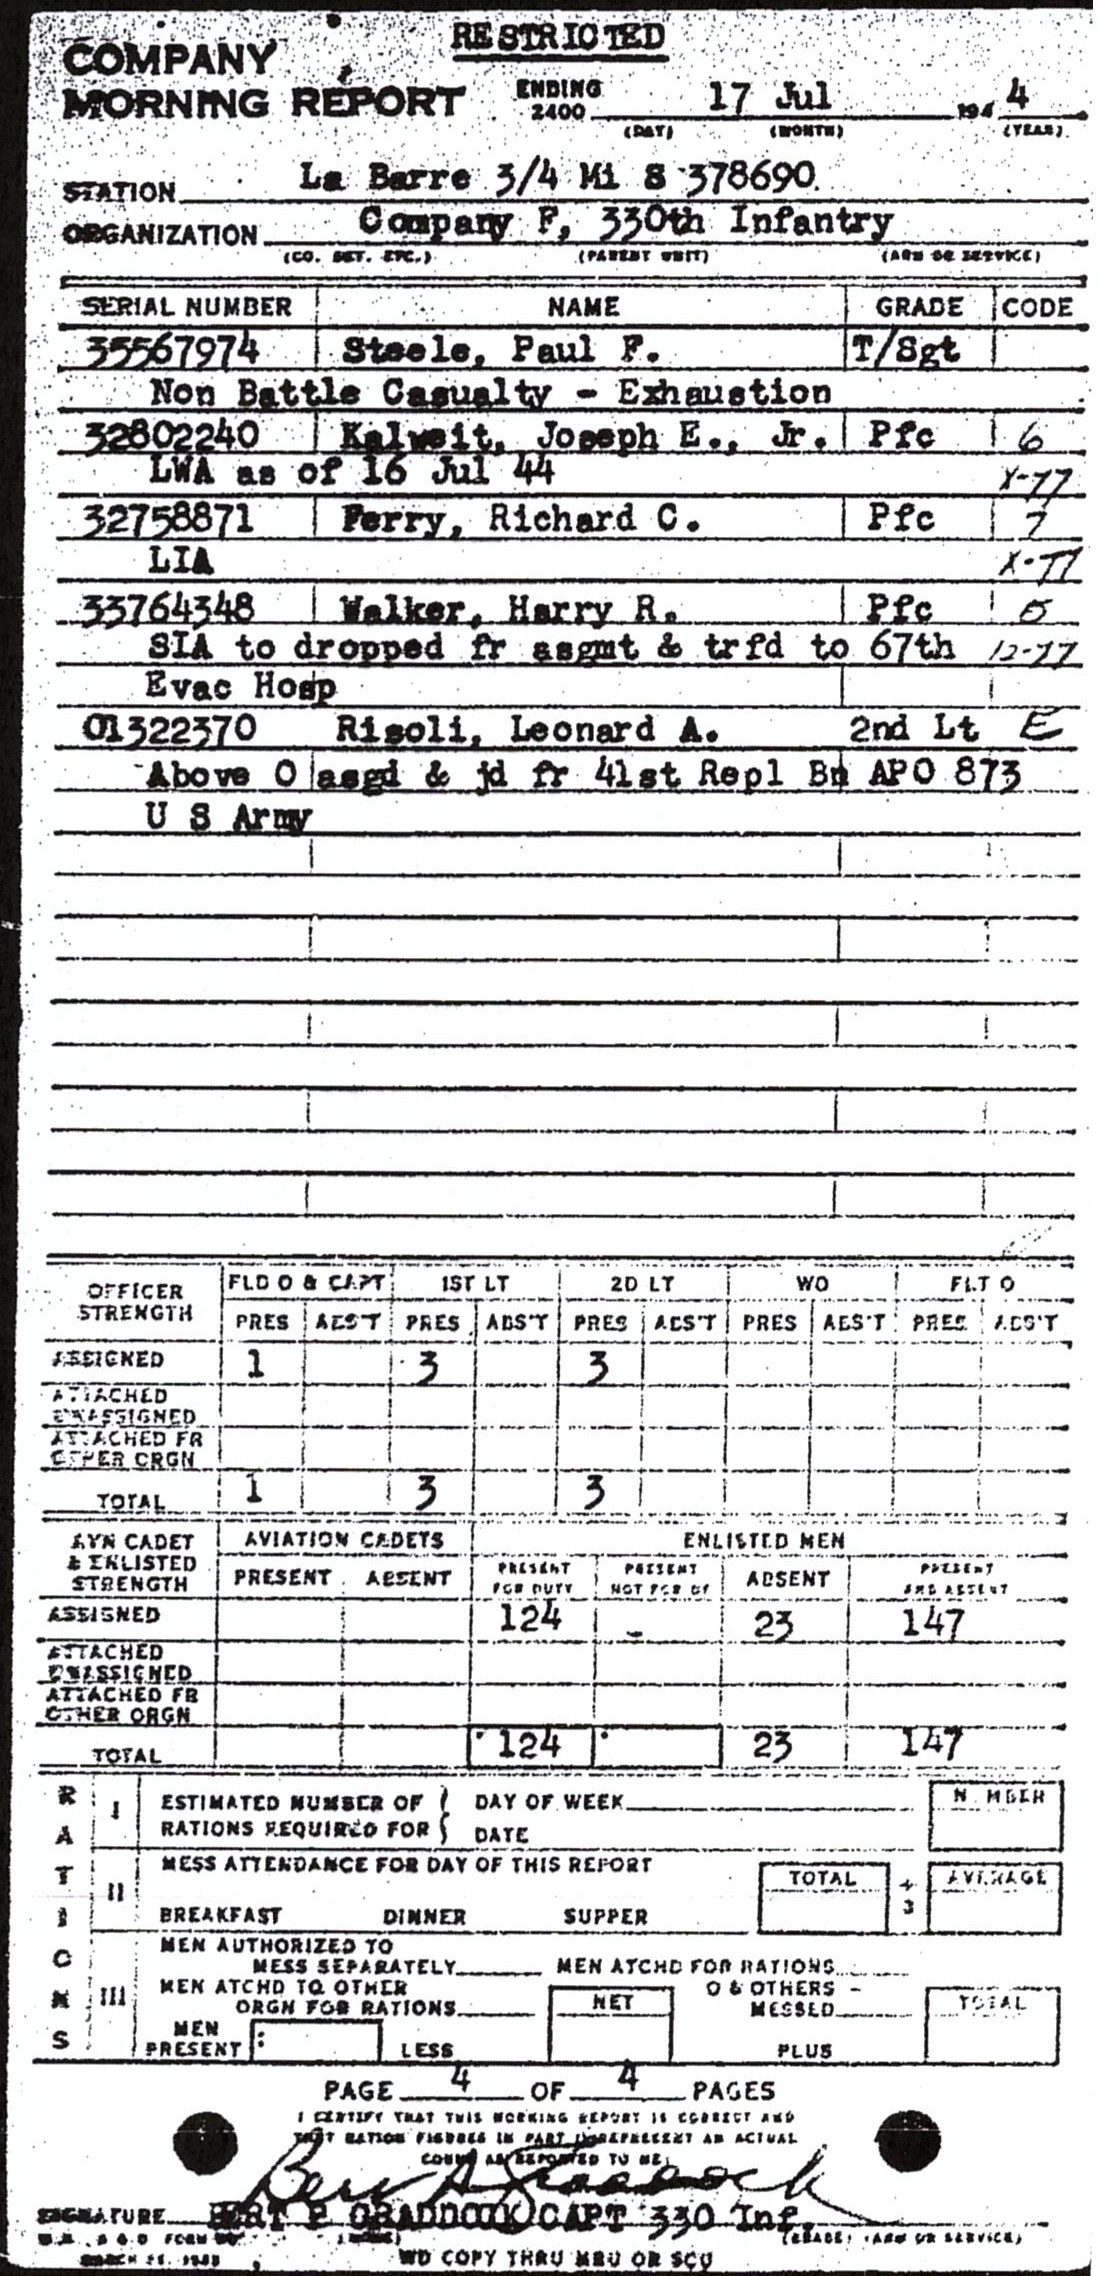 RESTRICTED
COMPANY
MORNING REPORT ENDING 2400 17 Jul 194 4
(DAY) (MONTH) (YEAR)
STATION La Barre 3/4 Mi S 378690
ORGANIZATION Company F, 330th Infantry
(CO. DET. ETC.) (PARENT UNIT) (ARM OR SERVICE)
SERIAL NUMBER NAME GRADE CODE
35567974 Steele, Paul F. T/Sgt
Non Battle Casualty - Exhaustion
32802240 Kalweit, Joseph E., Jr. Pfc 6
LWA as of 16 Jul 44 X-77
32758871 Perry, Richard C. Pfc 7
LIA X-77
33764348 Walker, Harry R. Pfc 5
SIA to dropped fr asgmt & trfd to 67th 12-77
Evac Hosp
01322370 Risoli, Leonard A. 2nd Lt E
Above O asgd & jd fr 41st Repl Bn APO 873
U S Army
OFFICER STRENGTH FLD O & CAPT 1ST LT 2D LT WO FLT O
PRES ABS'T PRES ABS'T PRES ABS'T PRES ABS'T PRES ABS'T
ASSIGNED 1 3 3
ATTACHED UNASSIGNED
ATTACHED FR OTHER ORGN
TOTAL 1 3 3
AVN CADET & ENLISTED STRENGTH AVIATION CADETS ENLISTED MEN
PRESENT ABSENT PRESENT FOR DUTY PRESENT NOT FOR DY ABSENT PRESENT AND ABSENT
ASSIGNED 124 - 23 147
ATTACHED UNASSIGNED
ATTACHED FR OTHER ORGN
TOTAL 124 23 147
RATIONS
I ESTIMATED NUMBER OF RATIONS REQUIRED FOR DAY OF WEEK NUMBER
DATE
II MESS ATTENDANCE FOR DAY OF THIS REPORT TOTAL ÷ 3 AVERAGE
BREAKFAST DINNER SUPPER
III MEN AUTHORIZED TO MESS SEPARATELY MEN ATCHD FOR RATIONS
MEN ATCHD TO OTHER ORGN FOR RATIONS NET O & OTHERS MESSED TOTAL
MEN PRESENT LESS PLUS
PAGE 4 OF 4 PAGES
I CERTIFY THAT THIS MORNING REPORT IS CORRECT AND
THAT RATION FIGURES IN PART III REPRESENT AN ACTUAL
COUNT AS REPORTED TO ME
SIGNATURE CRADDOCK CAPT 330 Inf.
(NAME) (GRADE) (ARM OR SERVICE)
W.D. A G O FORM
MARCH
WD COPY THRU MRU OR SCU